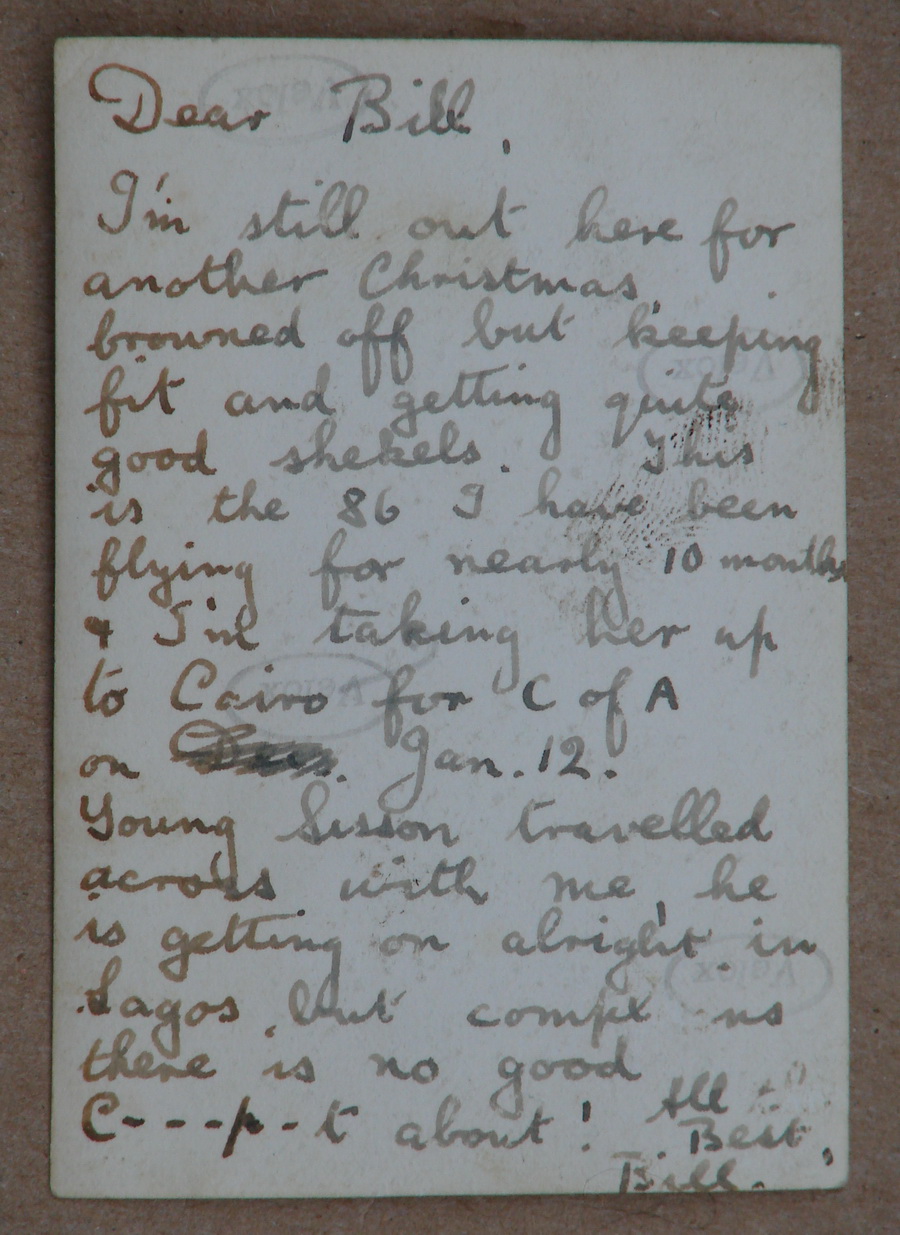 Dear Bill,
I'm still out here for
another Christmas,
browned off but keeping
fit and getting quite
good shekels. This
is the 86 I have been
flying for nearly 10 months
& I'm taking her up
to Cairo for C of A
on Jan. 12.
Young Sisson travelled
across with me, he
is getting on alright in
Lagos but
there is no good
C---p-t about! All the
Best,
Bill.
Velox
Velox
Velox
Velox